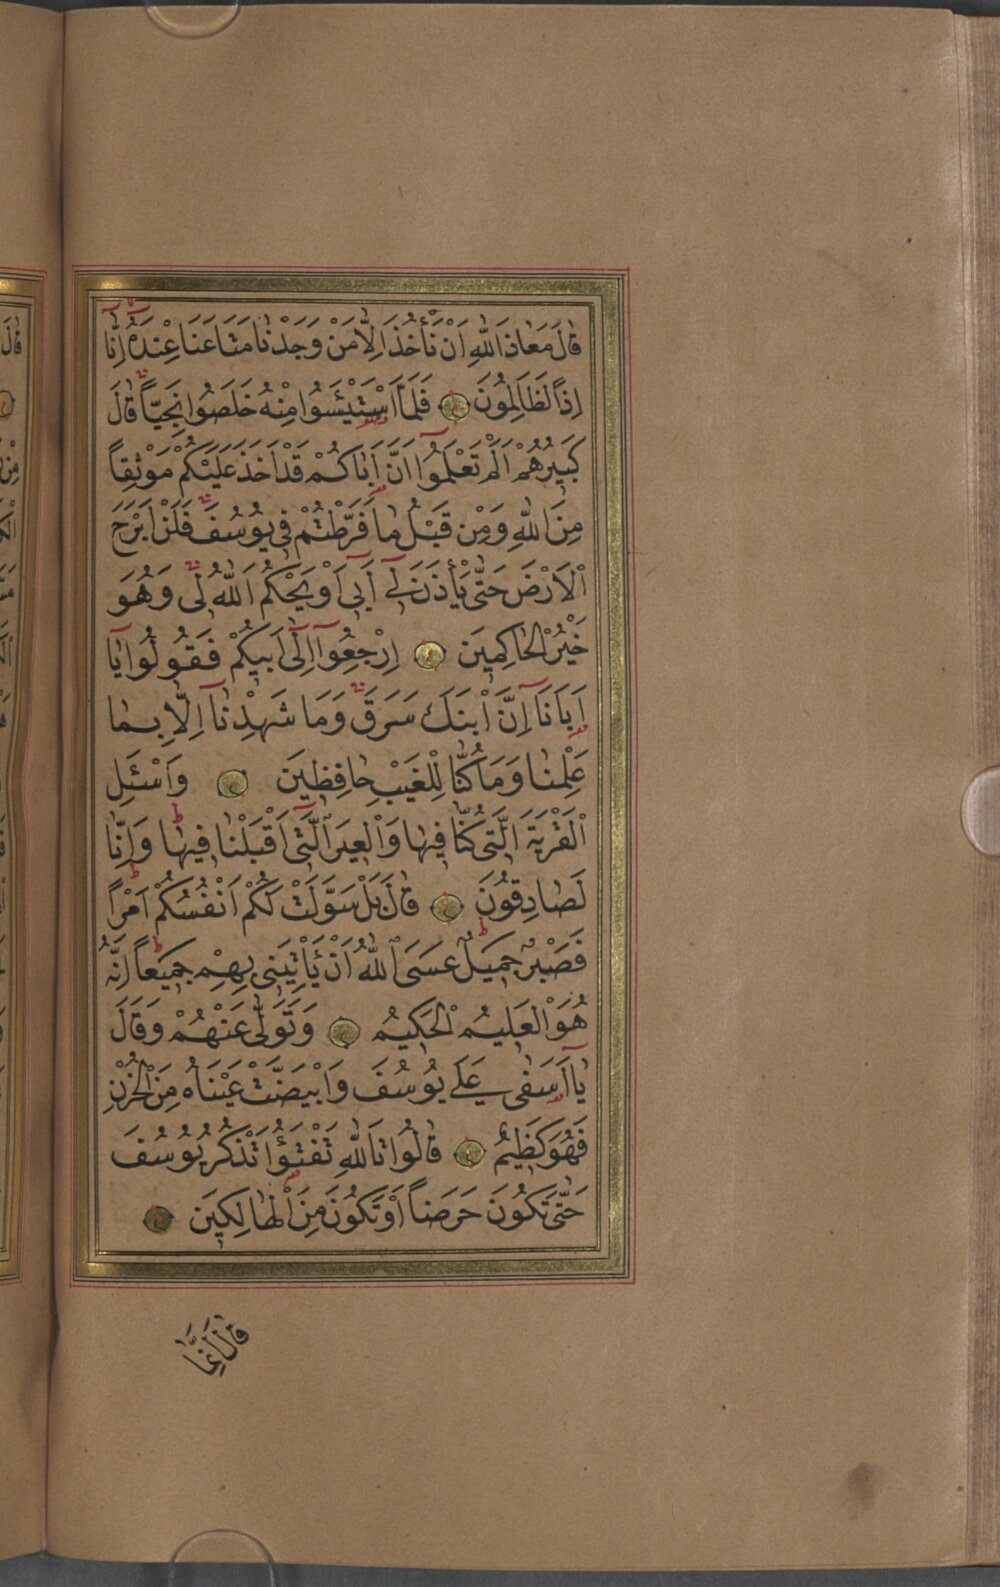 قَالَ مَعَاذَ اللّٰهِ اَنْ نَأْخُذَ اِلَّا مَنْ وَجَدْنَا مَتَاعَنَا عِنْدَهُ اِنَّا
اِذًا لَظَالِمُونَ فَلَمَّا اسْتَيْئَسُوا مِنْهُ خَلَصُوا نَجِيًّا قَالَ
كَبِيرُهُمْ اَلَمْ تَعْلَمُوا اَنَّ اَبَاكُمْ قَدْ اَخَذَ عَلَيْكُمْ مَوْثِقًا
مِنَ اللّٰهِ وَمِنْ قَبْلُ مَا فَرَّطْتُمْ فِي يُوسُفَ فَلَنْ اَبْرَحَ
الْاَرْضَ حَتّٰى يَأْذَنَ لِي اَبِي اَوْ يَحْكُمَ اللّٰهُ لِي وَهُوَ
خَيْرُ الْحَاكِمِينَ اِرْجِعُوا اِلٰى اَبِيكُمْ فَقُولُوا يَا
اَبَانَا اِنَّ ابْنَكَ سَرَقَ وَمَا شَهِدْنَا اِلَّا بِمَا
عَلِمْنَا وَمَا كُنَّا لِلْغَيْبِ حَافِظِينَ وَاسْئَلِ
الْقَرْيَةَ الَّتِي كُنَّا فِيهَا وَالْعِيرَ الَّتِي اَقْبَلْنَا فِيهَا وَاِنَّا
لَصَادِقُونَ قَالَ بَلْ سَوَّلَتْ لَكُمْ اَنْفُسُكُمْ اَمْرًا
فَصَبْرٌ جَمِيلٌ عَسَى اللّٰهُ اَنْ يَأْتِيَنِي بِهِمْ جَمِيعًا اِنَّهُ
هُوَ الْعَلِيمُ الْحَكِيمُ وَتَوَلّٰى عَنْهُمْ وَقَالَ
يَا اَسَفٰى عَلٰى يُوسُفَ وَابْيَضَّتْ عَيْنَاهُ مِنَ الْحُزْنِ
فَهُوَ كَظِيمٌ قَالُوا تَاللّٰهِ تَفْتَؤُا تَذْكُرُ يُوسُفَ
حَتّٰى تَكُونَ حَرَضًا اَوْ تَكُونَ مِنَ الْهَالِكِينَ
قَالَ اِنَّمَا